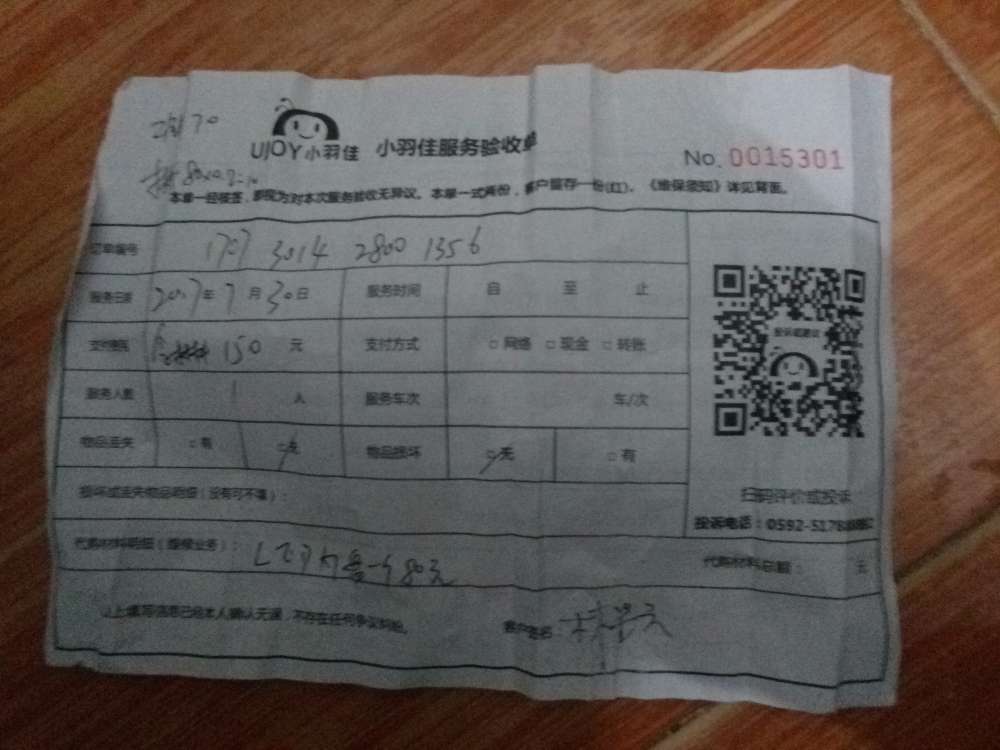 UJOY小羽佳 小羽佳服务验收单
No. 0015301
本单一经接签，即视为对本次服务验收无异议。本单一式两份，客户留存一份(红)。《维保须知》详见背面。
订单编号 1707 3014 2800 1356
服务日期 2017年7月30日 服务时间 自 至 止
支付费用 150 元 支付方式 □网络 □现金 □转账
服务人数 1 人 服务车次 车/次
物品丢失 □有 □无 物品损坏 □无 □有
损坏或丢失物品明细（没有可不填）：
扫码评价或投诉
投诉电话：0592-517
代购材料明细（维修业务）： 80元 代购材料总额： 元
以上填写信息已经本人确认无误，不存在任何争议纠纷。 客户签名：